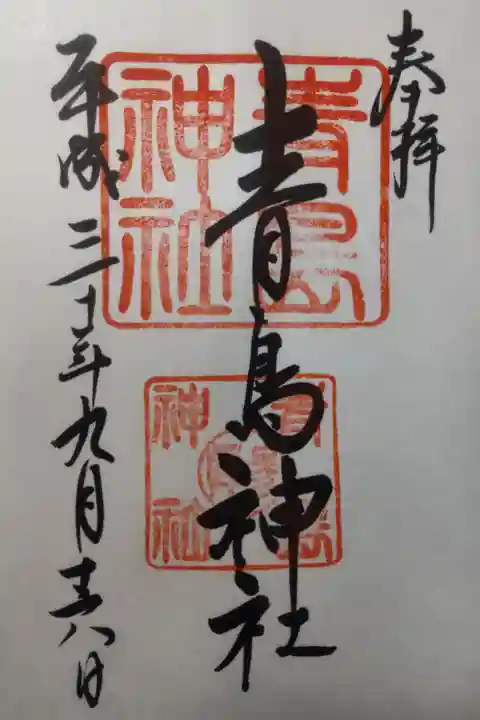 奉拝
青島神社
平成三十年九月十六日
青島
神社
青島
神社